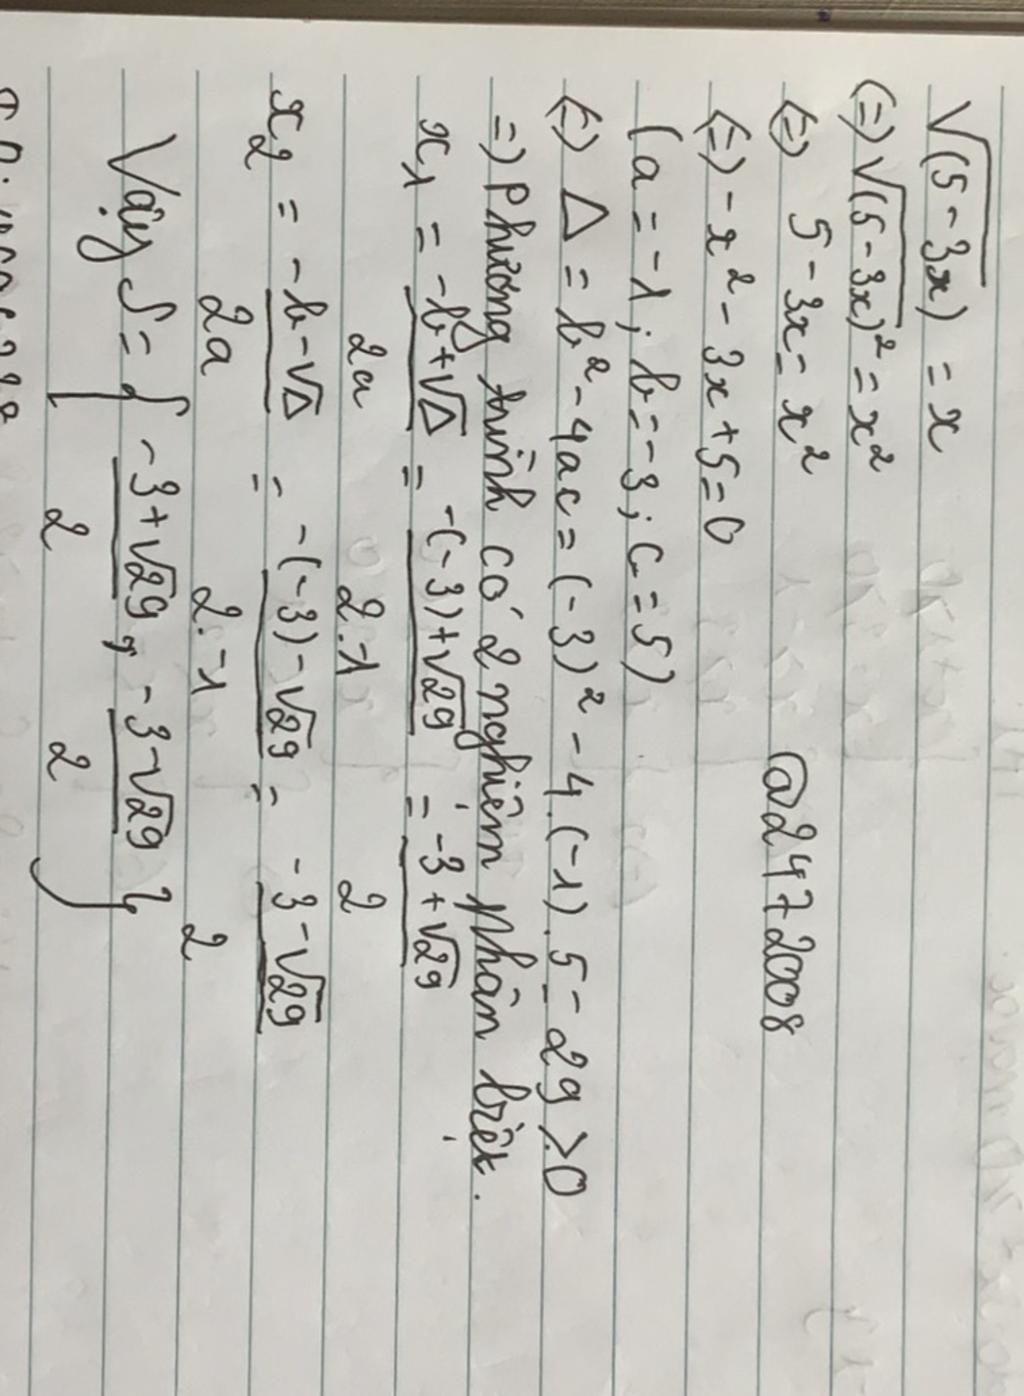 √(5-3x) = x
(=) √(5-3x)² = x²
(=) 5-3x = x²
@2472008
(=) -x² - 3x + 5 = 0
(a = -1; b = -3; c = 5)
(=) Δ = b² - 4ac = (-3)² - 4.(-1).5 = 29 > 0
=) Phương trình có 2 nghiệm phân biệt.
x₁ = -b+√Δ / 2a = -(-3)+√29 / 2.-1 = -3+√29 / 2
x₂ = -b-√Δ / 2a = -(-3)-√29 / 2.-1 = -3-√29 / 2
Vậy S = { -3+√29 / 2, -3-√29 / 2 }